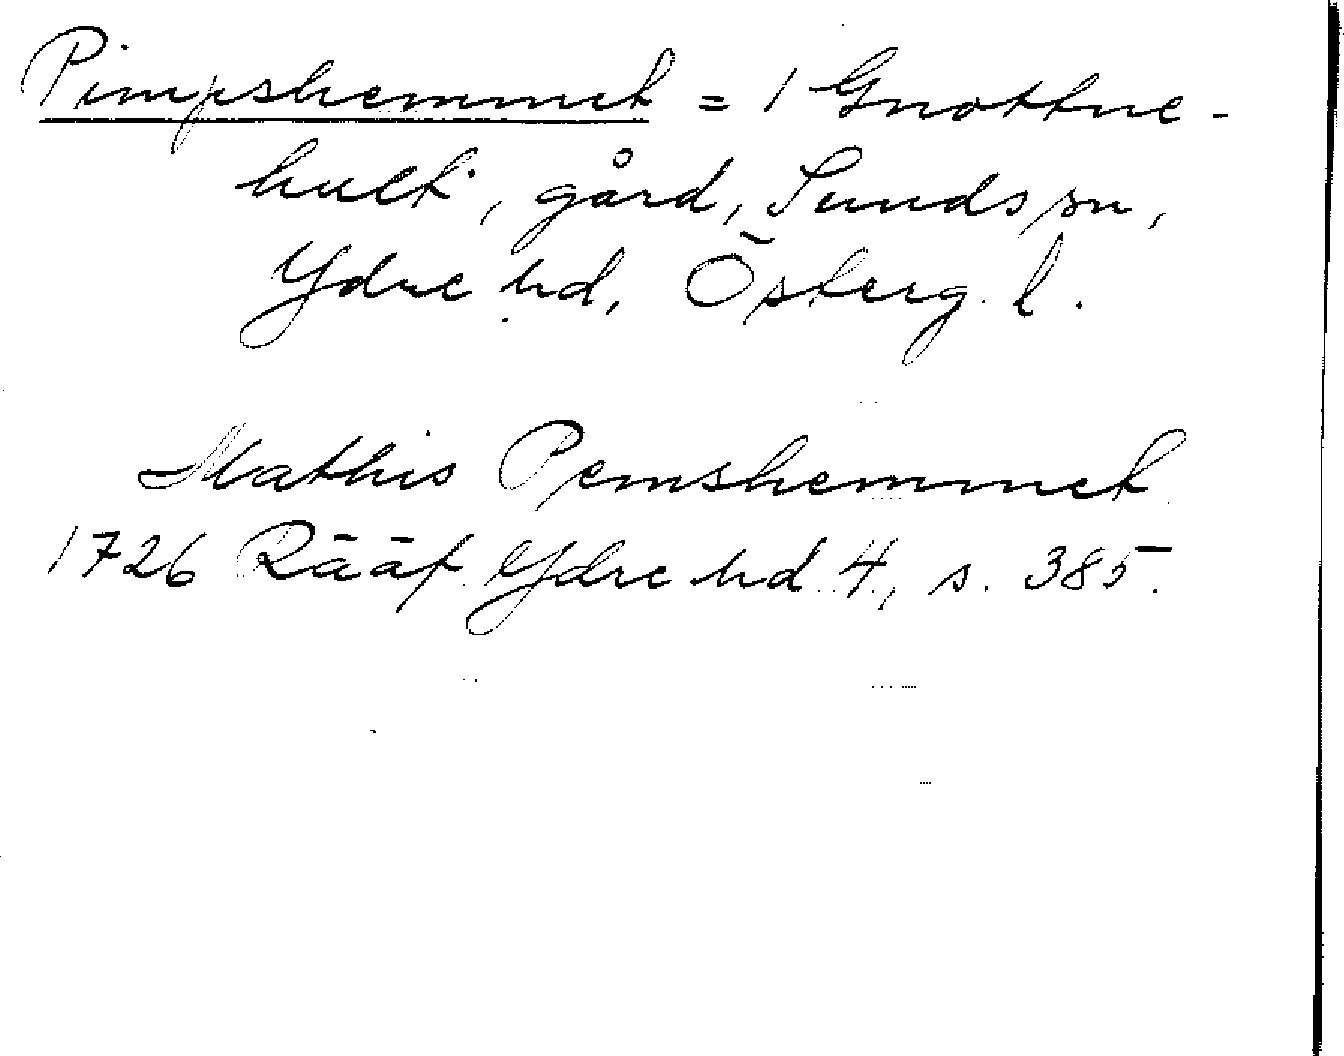 Pimpshemmet = 1 Gnottne-
hult, gård, Sunds sn,
Ydre hd, Österg. l.
Mathis Pemshemmet
1726 Rääf Ydre hd 4, s. 385.